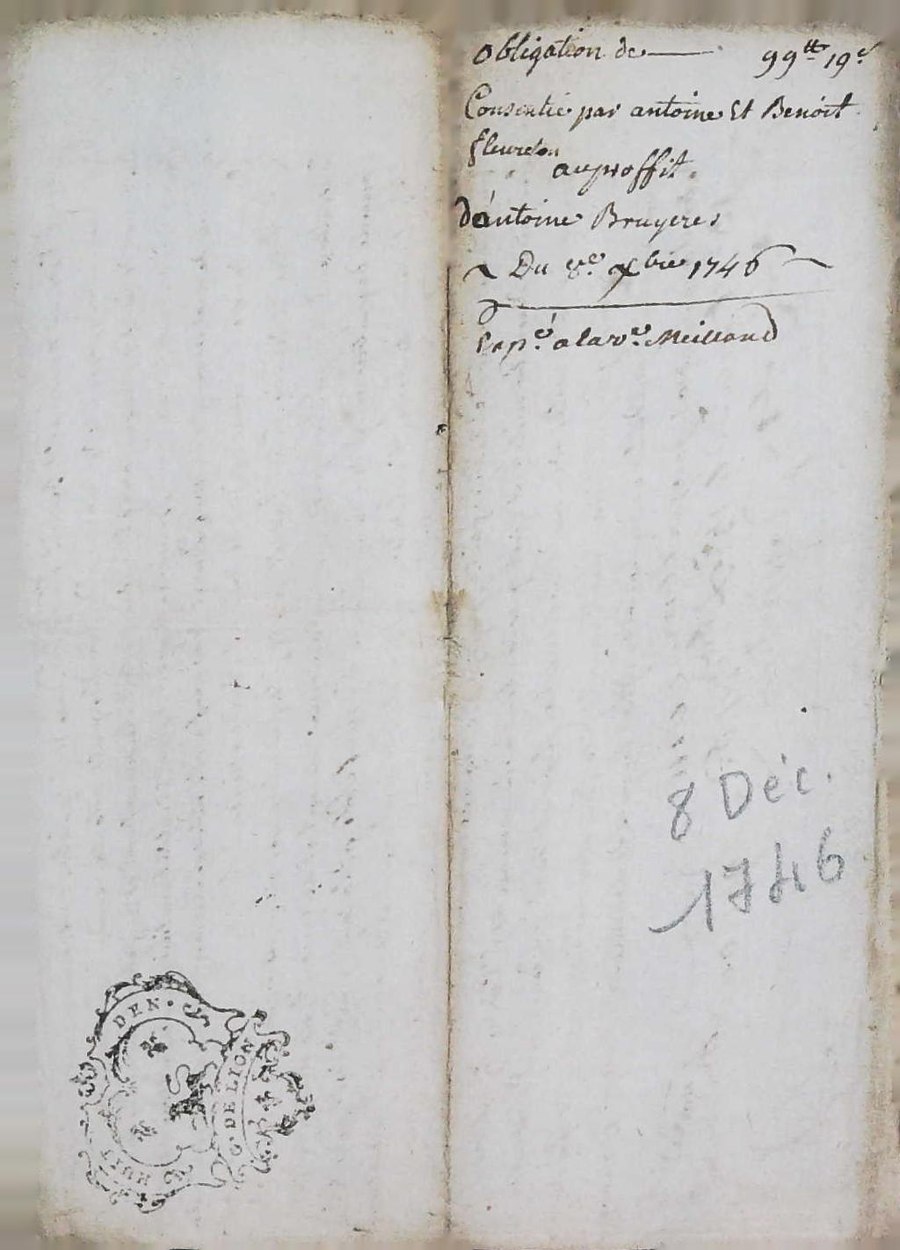 Obligation de — 99ᵗᵗ 19ˢ
Consentie par antoine Et Benoit
fleureton
au proffit
d'antoine Bruyeres
~ Du 8ᵉ xbre 1746 ~
Exp.ᵉ a la vᵉ. Meilland
8 Déc.
1746
DEN.
G. DE LION
HUIT